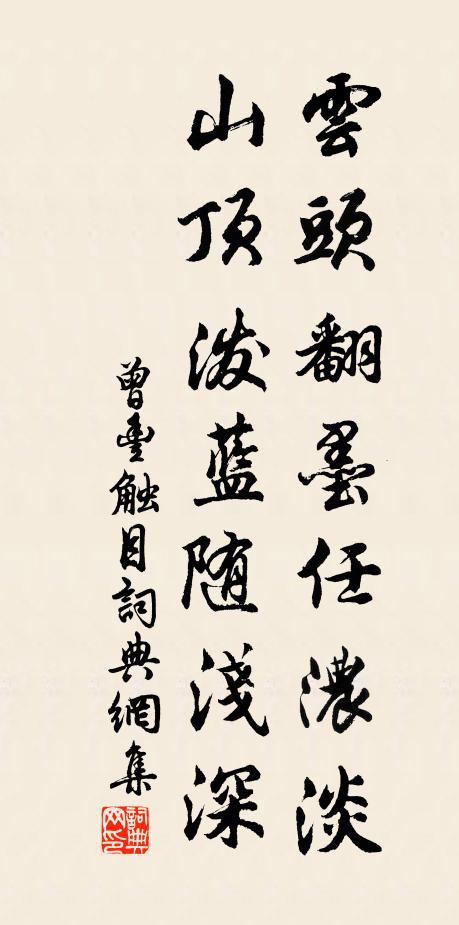 雲頭翻墨任濃淡
山頂泼藍随淺深
曾豊触目詞典網集
詞典網印